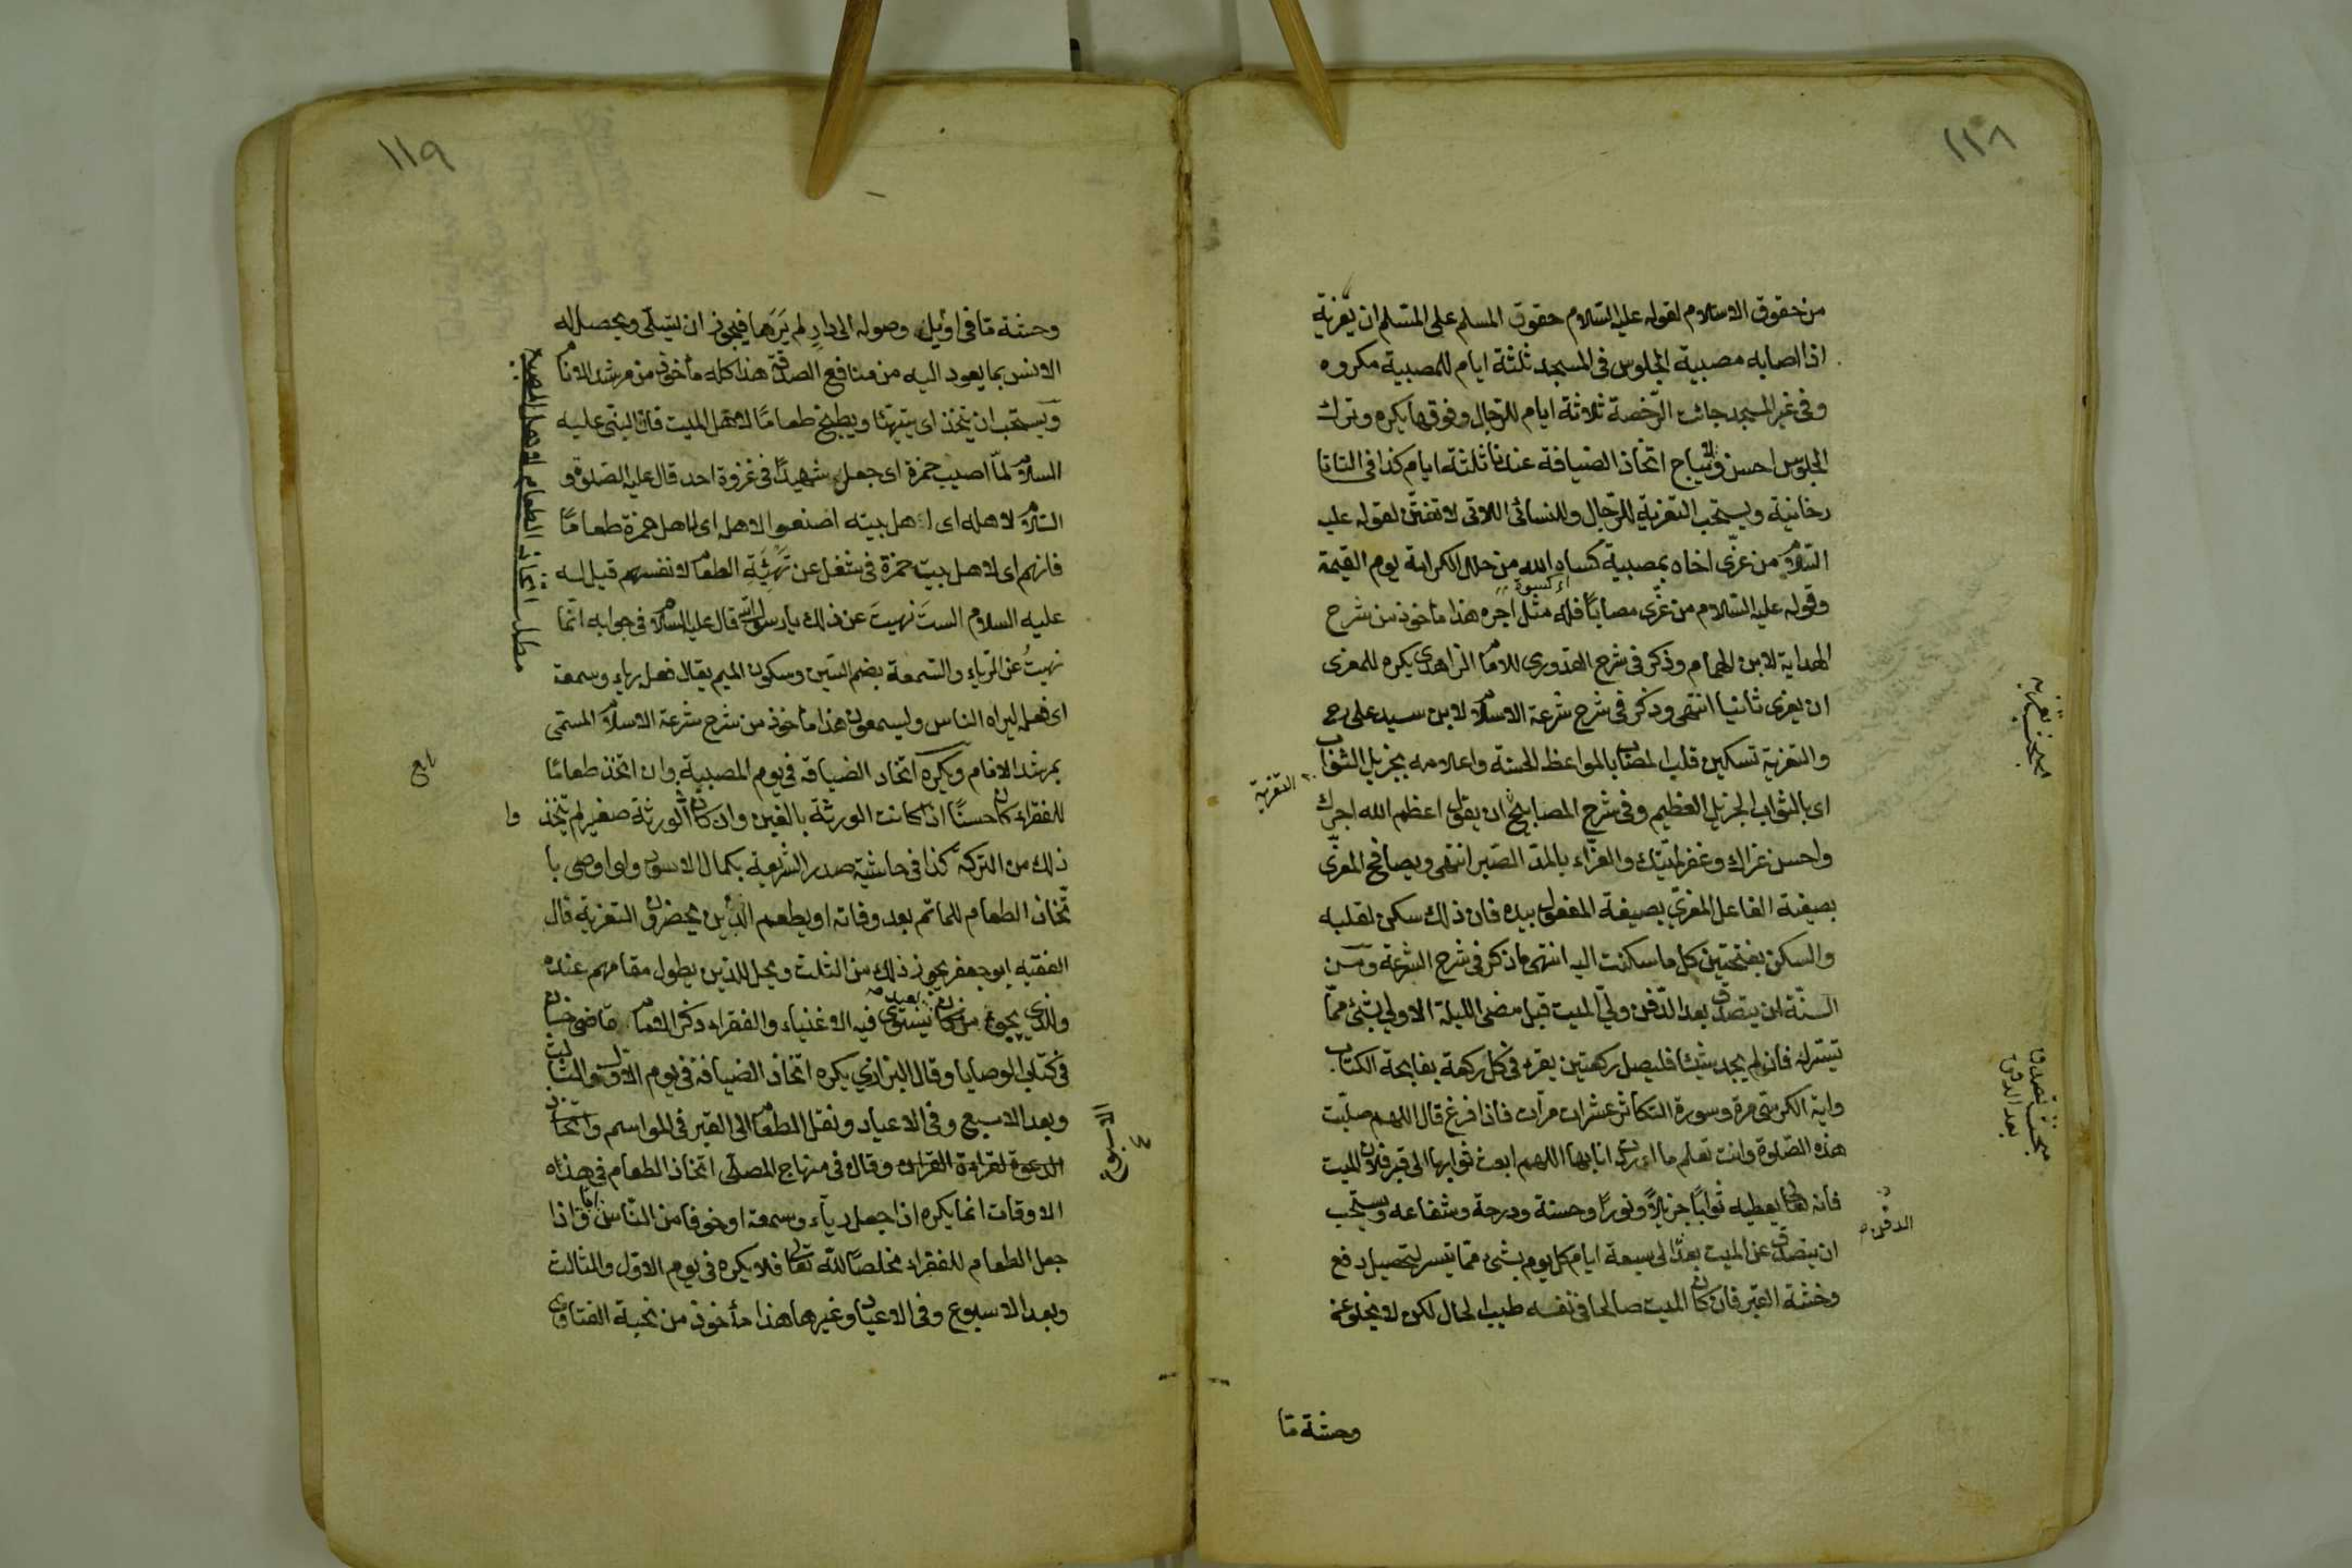 ١١٨
من حقوق الاسلام لقوله عليه السلام حقوق المسلم على المسلم ان يعزيه
اذا اصابه مصيبة الجلوس فى المسجد ثلثة ايام للمصيبة مكروه
وفى غير المسجد جائت الرخصة ثلاثة ايام للرجال وفوقها يكره وترك
الجلوس احسن ولا يباح اتخاذ الضيافة عندنا ثلثة ايام كذا فى التاتا
رخانية ويستحب التعزية للرجال وللنسائى اللاتى لا تفتن لقوله عليه
السلام من عزى اخاه بمصيبة كساه الله من حلل الكرامة يوم القيمة
وقوله عليه السلام من عزى مصابا فله مثل اجره هذا مأخوذ من شرح
الهداية لابن الهمام وذكر فى شرح القدورى للامام الزاهدى يكره للمعزى
ان يعزى ثانيا انتهى وذكر فى شرح شرعة الاسلام لابن سيد على رح
والتعزية تسكين قلب المصاب بالمواعظ الحسنة واعلامه بجزيل الثواب
اى بالثواب الجزيل العظيم وفى شرح المصابيح ان يقول اعظم الله اجرك
واحسن عزاك وغفر لميتك والعزاء بالمد الصبر انتهى ويصافح المعزى
بصيغة الفاعل المعزى بصيغة المفعول بيده فان ذلك سكن لقلبه
والسكن بفتحتين كل ما سكنت اليه انتهى ما ذكر فى شرح الشرعة ومن
السنة ان يتصدق بعد الدفن ولى الميت قبل مضى الليلة الاولى بشئ مما
تيسر له فان لم يجد شيئا فليصل ركعتين يقرء فى كل ركعة بفاتحة الكتاب
واية الكرسى مرة وسورة التكاثر عشرات مرات فاذا فرغ قال اللهم صليت
هذه الصلوة وانت تعلم ما اردت انا بها اللهم ابعث ثوابها الى قبر فلان الميت
فانه تعالى يعطيه ثوابا جزيلا ونورا وحسنة ودرجة وشفاعه ويستحب
ان يتصدق عن الميت بعد الى سبعة ايام كل يوم بشئ مما تيسر لتحصيل دفع
وحشة القبر فان كان الميت صالحا فى نفسه طيب الحال لكن لا يخلو عن
وحشة ما
التعزية
مبحث تعزيه
مبحث تصدق
بعد الدفن
الدفن
١١٩
وحشة ما فى اوئيل وصوله الى دار لم يرها فيجوز ان يتسلى ويحصل له
الانس بما يعود اليه من منافع الصدقة هذا كله مأخوذ من مرشد الانام
ويستحب ان يتخذ اى يتهيئا ويطبخ طعاما لاهل الميت فان النبى عليه
السلام لما اصيب حمزة اى جعل شهيدا فى غزوة احد قال عليه الصلوة و
السلام لاهله اى لاهل بيته اصنعوا لاهله اى لاهل حمزة طعاما
فانهم اى لاهل بيت حمزة فى شغل عن تهيئة الطعام لانفسهم قيل له
عليه السلام الست نهيت عن ذلك يا رسول الله قال عليه السلام فى جوابه انما
نهيت عن الرياء والسمعة بضم السين وسكون الميم يقال فعل رياء وسمعة
اى فعله ليراه الناس وليسمعون هذا مأخوذ من شرح شرعة الاسلام المسمى
بمرشد الانام ويكره اتخاذ الضيافة فى يوم المصيبة وان اتخذ طعاما
للفقراء كان حسنا اذا كانت الورثة بالغين وان كان الورثة صغير لم يتخذ
ذلك من التركة كذا فى حاشية صدر الشريعة بكمال الاسود ولو اوصى با
تخاذ الطعام للماتم بعد وفاته او يطعم الذين يحضرون التعزية قال
الفقيه ابو جعفر يجوز ذلك من الثلث ويحل للذين يطول مقامهم عنده
والذى يجئ من مكان بعيد يستوى فيه الاغنياء والفقراء ذكر الامام قاضى خان
فى كتاب الوصايا وقال البزازى يكره اتخاذ الضيافة فى يوم الاول والثالث
وبعد الاسبوع وفى الاعياد ونقل الطعام الى القبر فى المواسم واتخاذ
الدعوة لقراءة القران وقال فى منهاج المصلى اتخاذ الطعام فى هذه
الاوقات انما يكره اذا جعل رياء وسمعة او خوفا من الناس واما اذا
جعل الطعام للفقراء مخلصا لله تعالى فلا يكره فى يوم الاول والثالث
وبعد الاسبوع وفى الاعياد وغيرها هذا مأخوذ من نخبة الفتاوى
مطلب اتخاذ الطعام لاهل المصيبة
الاسبوع